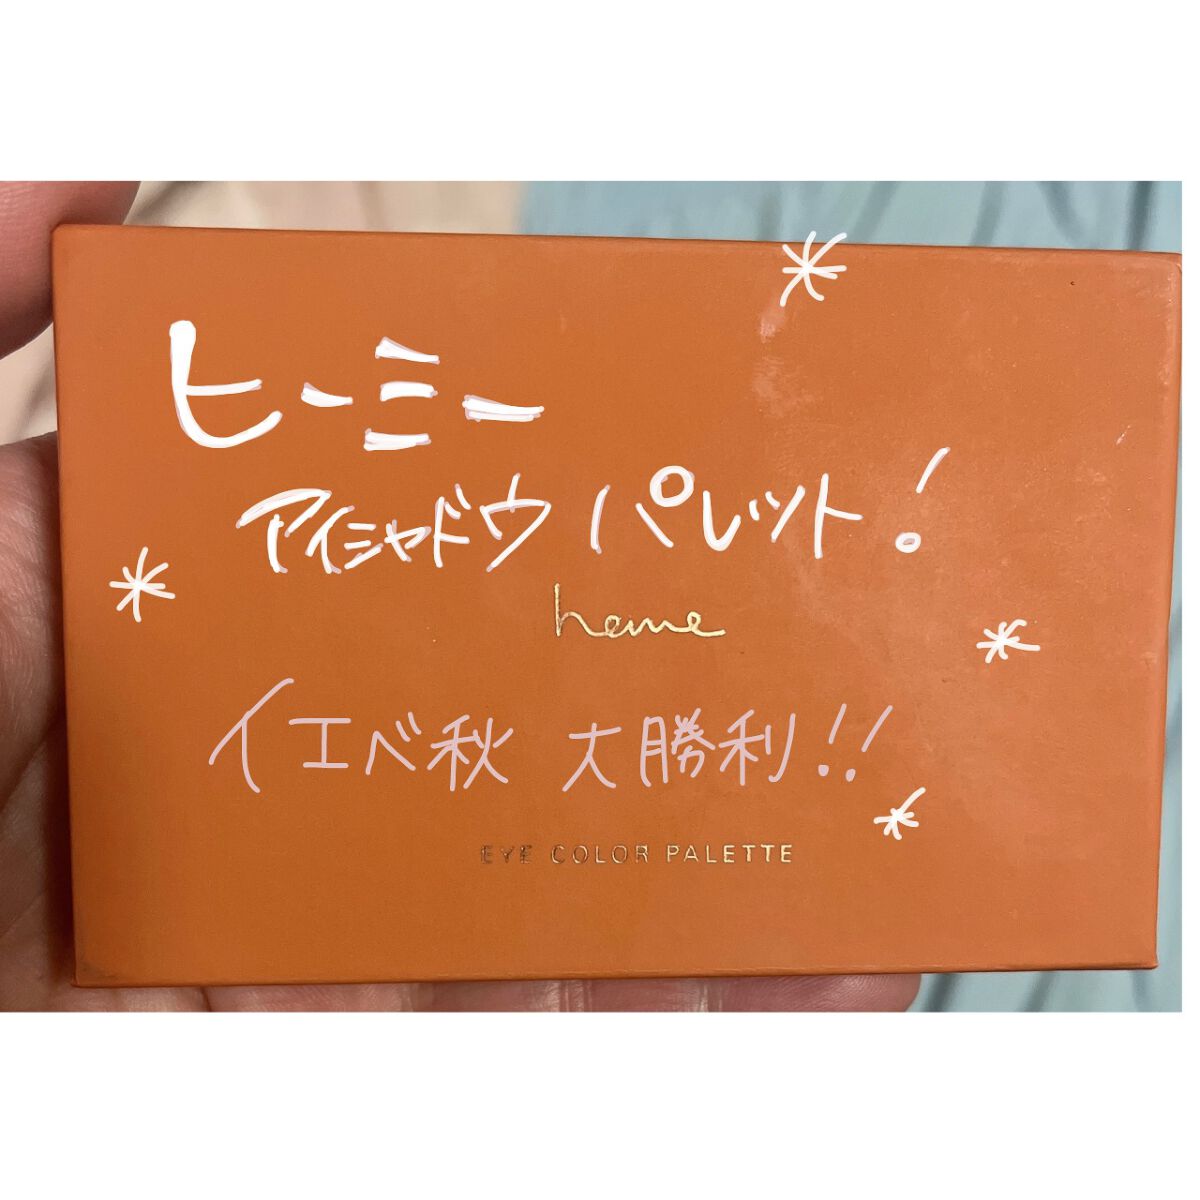 ヒーミー
アイシャドウ パレット!
heme
イエベ秋 大勝利!!
EYE COLOR PALETTE